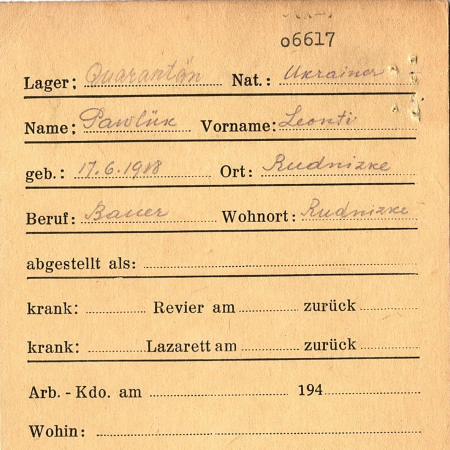 06617
Lager: Quarantän Nat.: Ukrainer
Name: Pawlük Vorname: Leonti
geb.: 17.6.1918 Ort: Rudnizke
Beruf: Bauer Wohnort: Rudnizke
abgestellt als:
krank: Revier am zurück
krank: Lazarett am zurück
Arb. - Kdo. am 194
Wohin: